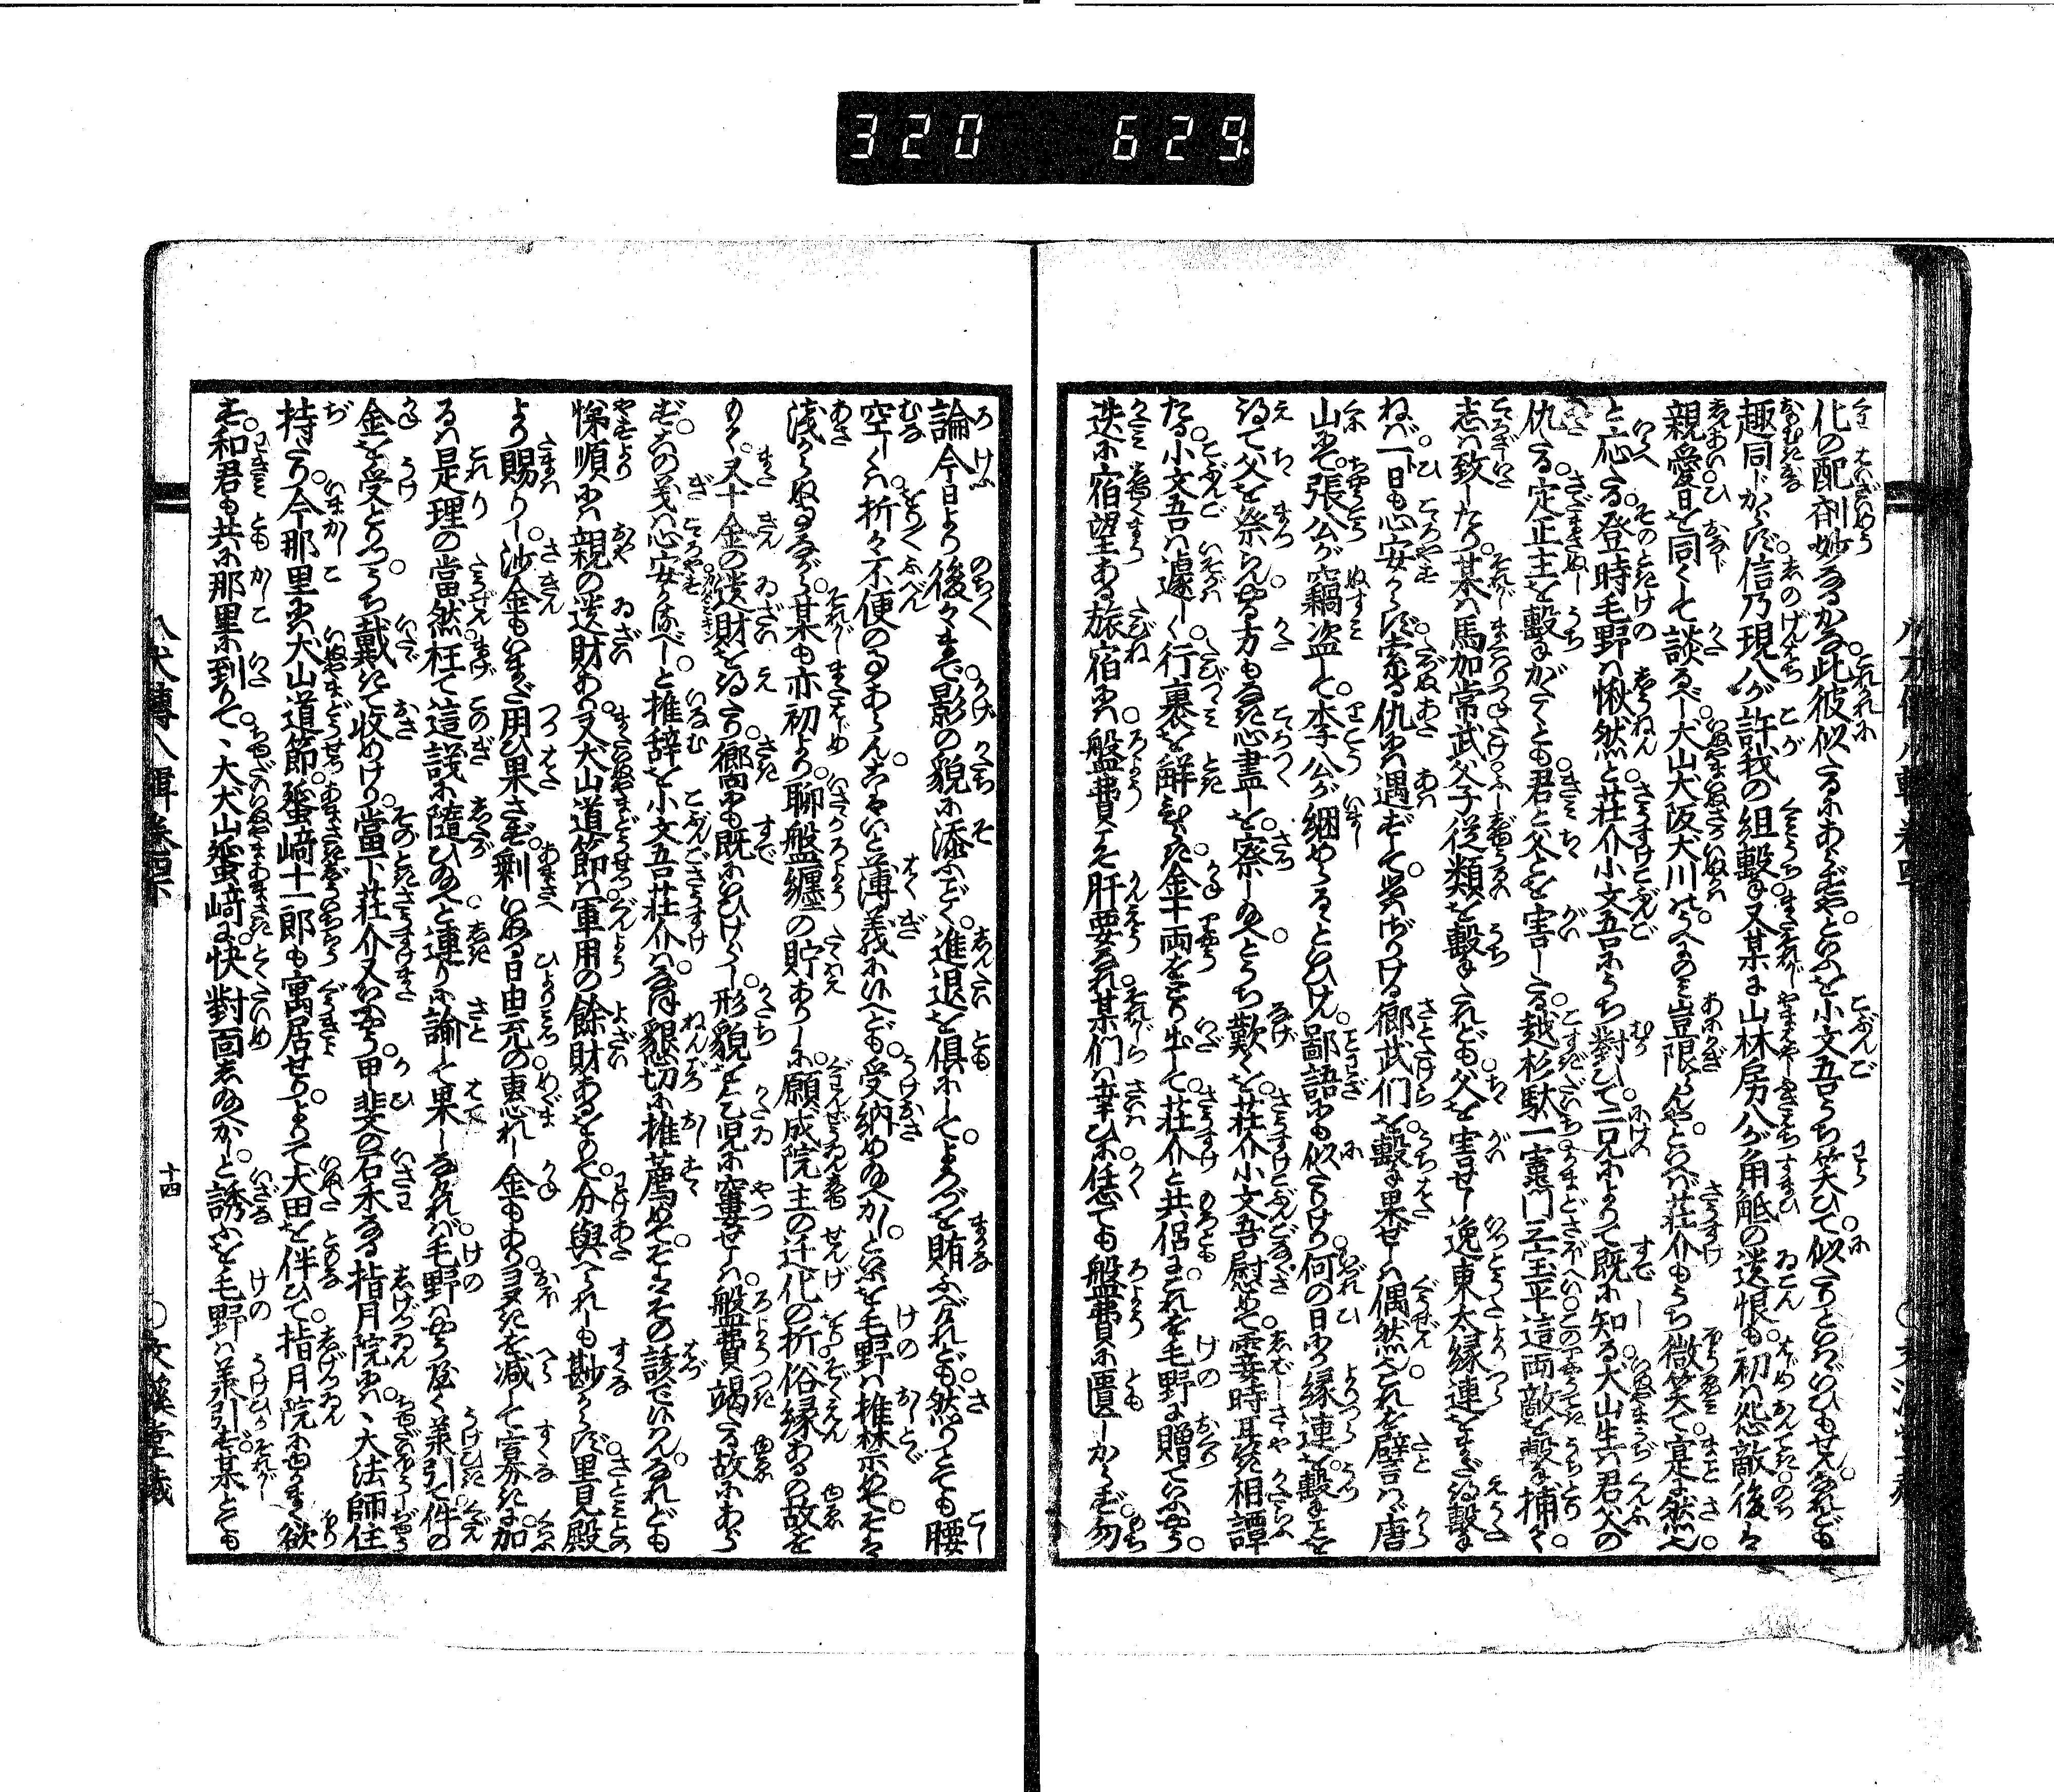 320 629
化の配剤妙なるかな。此彼似たるにあらずや。といふを小文吾うち笑ひて。似たりといはゞいひもせん。なれども
趣同じからず。信乃現八が許我の組撃。又某と山林房八が角觝の遺恨も。初は怨敵後は
親愛。日を同くして談るべし。犬山犬阪犬川の、うへのみ豈限らんや。といへば莊介もうち微笑て。寔に然也。
と応たる。登時毛野は愀然と。莊介小文吾にうち對ひて。二兄によりて既に知る。犬山生は君父の
仇たる。定正主を撃がたくとも。君と父とを害したる。越杉駄一竈門三宝平。這両敵を撃捕て。
志は致したり。某は馬加常武父子従類を撃たれども。父を害せし。逸東太縁連をまだ得撃
ねば。一日も心安からず。索る仇には遇ずして。興ざりける郷武们を。撃果せしは偶然也。これを譬はゞ唐
山にて。張公が竊盗して。李公が綑めらるゝといひけん。鄙語にも似たりけり。何の日にか縁連を。撃とを
得て父を祭らん。やる方もなき心盡しを。察し給へとうち歎くを。莊介小文吾慰めて。霎時耳熟相譚
たる。小文吾は遽しく。行裹を解きひらき。金十両をとり出して。莊介と共侶に。これを毛野に贈ていふやう。
迭に宿望ある旅宿には。盤費こそ肝要なれ。某们は幸ひに任てても盤費に匱しからず。勿
論今日より後々まで。影の貌に添ふごとく。進退を倶にして。よろづを賄ふべけれども。然りとても腰
空しくは。折々不便の事あらん。こはいと薄義に侍れども。受納め給へかし。といふを毛野は推禁めて。そは
浅からぬ事ながら。某も亦初より。聊盤纏の貯ありしに。願成院主の迁化の折。俗縁あるの故を
もて。又十金の遺財を得たり。嚮にも既にいひけらし。形貌を乞児に窶せしは。盤費竭たる故にあら
ず。この義は心安かるべし。と推辞を小文吾莊介は。なほ懇切に推薦めて。そはその該で侍らん。なれども
悌順には親の遺財あり。又犬山道節は。軍用の餘財あるをもて。分與へられしも尠からず。里見殿
より賜りし。沙金もいまだ用ひ果さず。剰いぬる日由充の恵れし金もあり。多きを減して寡きに加
るは是理の當然。枉て這議に隨ひ給へ。と連りに諭して果しなければ。毛野はやうやく承引て。件の
金を受とりつ。うち戴きて收めけり。當下莊介又いふやう。甲斐の石禾なる指月院には。丶大法師住
持たり。今那里には犬山道節。蜑﨑十一郎も寓居せり。よりて犬田を伴ひて。指月院にゆかまく欲
す。和君も共に那里に到りて。丶大犬山蜑﨑に快對面し給へかし。と誘ふを毛野は承引ず。某とても
八犬傳八輯卷四下
十四
○文溪堂藏